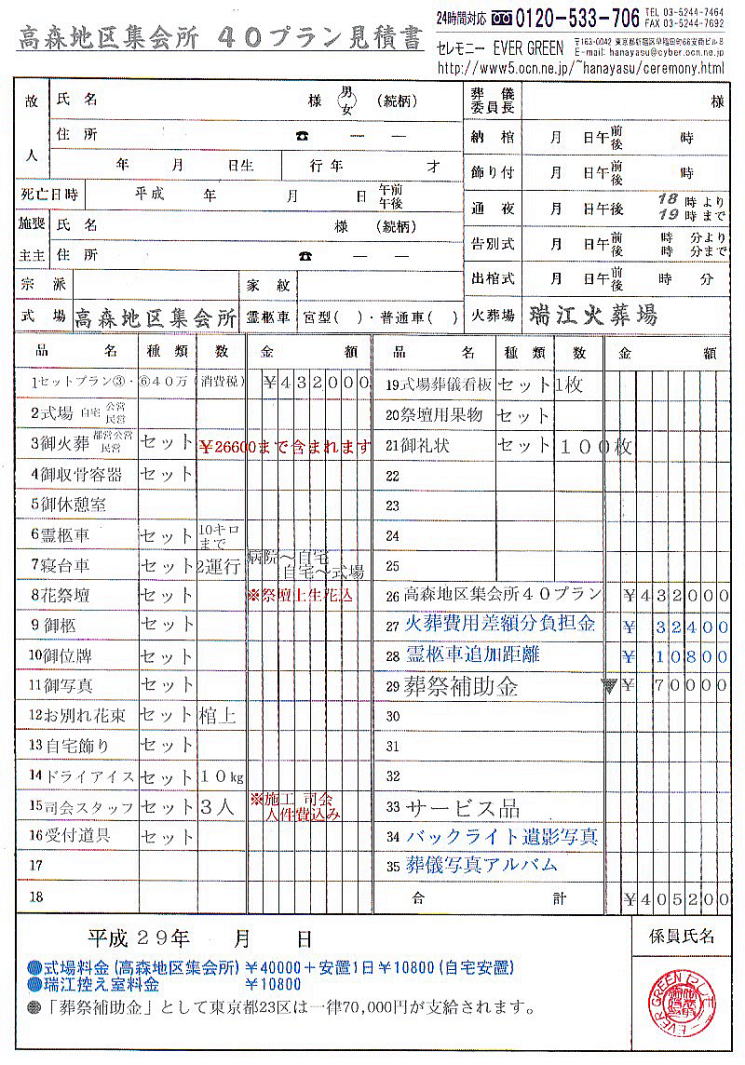 高森地区集会所 40プラン見積書
24時間対応 0120-533-706 TEL 03-5244-7464
FAX 03-5244-7692
セレモニー EVER GREEN 〒163-0042 東京都新宿区早稲田町66安南ビル8
E-mail: hanayasu@cyber.ocn.ne.jp
http://www5.ocn.ne.jp/~hanayasu/ceremony.html
故人 氏名 様 男 女 (続柄)
住所 ☎ ― ―
年 月 日生 行年 才
死亡日時 平成 年 月 日 午前 午後
施主 喪主 氏名 様 (続柄)
住所 ☎ ― ―
宗派 家紋
式場 高森地区集会所 霊柩車 宮型( )・普通車( )
葬儀委員長 様
納棺 月 日午前後 時
飾り付 月 日午前後 時
通夜 月 日午後 18時より 19時まで
告別式 月 日午前後 時 分より 時 分まで
出棺式 月 日午前後 時 分
火葬場 瑞江火葬場
品名 種類 数 金額
1セットプラン③・⑥40万 (消費税) ¥432000
2式場 自宅 公営 民営
3御火葬 都営公営 民営 セット ¥26600まで含まれます
4御収骨容器 セット
5御休憩室
6霊柩車 セット 10キロまで
7寝台車 セット 2運行 病院～自宅 自宅～式場
8花祭壇 セット ※祭壇上生花込
9御柩 セット
10御位牌 セット
11御写真 セット
12お別れ花束 セット 棺上
13自宅飾り セット
14ドライアイス セット 10kg
15司会スタッフ セット 3人 ※施工 司会 人件費込み
16受付道具 セット
17
18
品名 種類 数 金額
19式場葬儀看板 セット 1枚
20祭壇用果物 セット
21御礼状 セット 100枚
22
23
24
25
26 高森地区集会所40プラン ¥432000
27 火葬費用差額分負担金 ¥32400
28 霊柩車追加距離 ¥10800
29 葬祭補助金 ▼¥70000
30
31
32
33 サービス品
34 バックライト遺影写真
35 葬儀写真アルバム
合計 ¥405200
平成29年 月 日
●式場料金(高森地区集会所)¥40000+安置1日¥10800(自宅安置)
●瑞江控え室料金 ¥10800
●「葬祭補助金」として東京都23区は一律70,000円が支給されます。
係員氏名
EVER GREEN